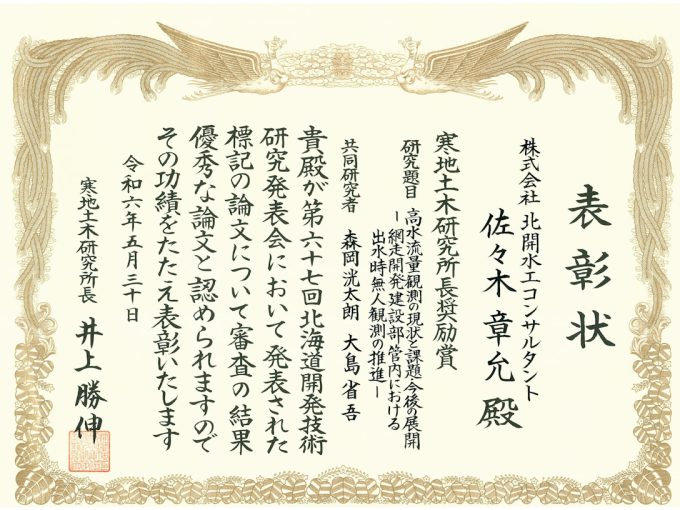 表彰状
株式会社 北開水工コンサルタント
佐々木章允殿
寒地土木研究所長奨励賞
研究題目 高水流量観測の現状と課題・今後の展開
ー網走開発建設部管内における
出水時無人観測の推進ー
共同研究者 森岡洸太朗 大島省吾
貴殿が第六十七回北海道開発技術
研究発表会において発表された
標記の論文について審査の結果
優秀な論文と認められますので
その功績をたたえ表彰いたします
令和六年五月三十日
寒地土木研究所長 井上勝伸